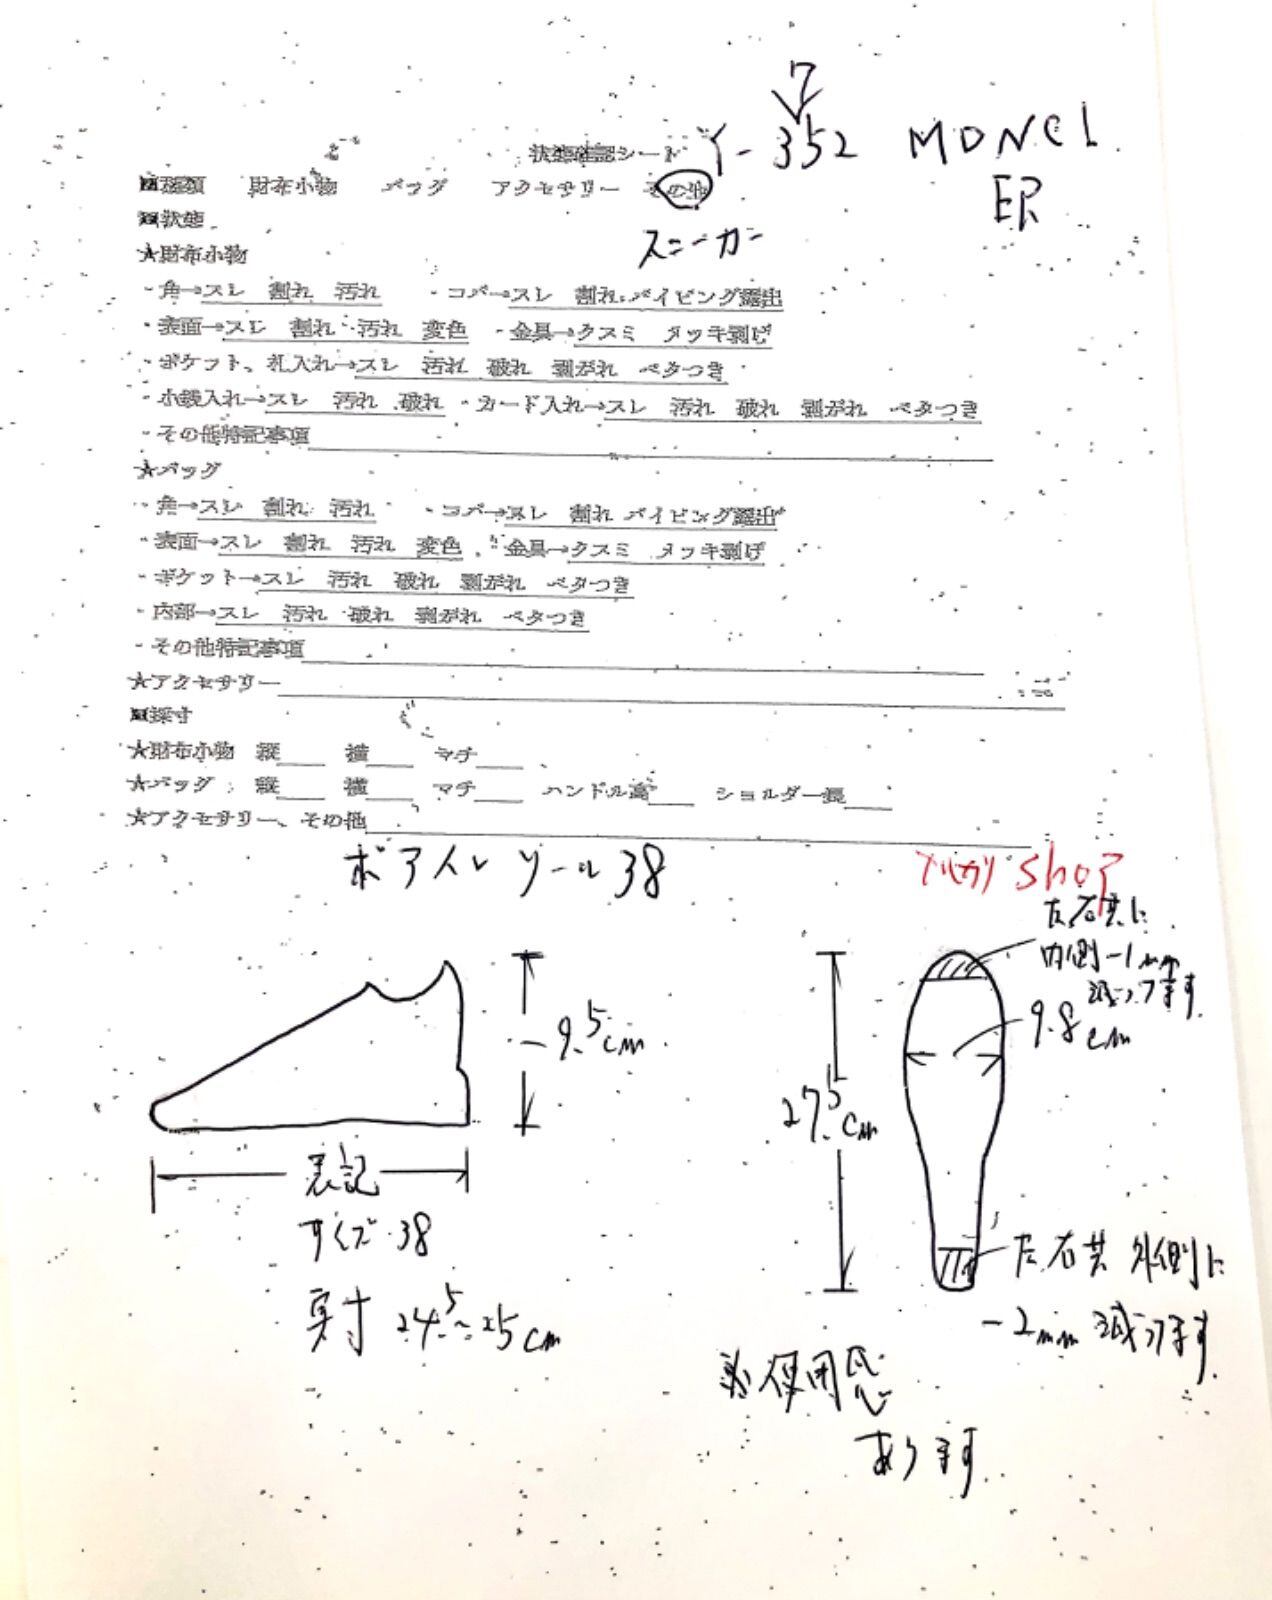 7
状態確認シート Y-352 MONCL
ER
■種類 財布小物 バッグ アクセサリー その他
スニーカー
■状態
★財布小物
・角→スレ 割れ 汚れ ・コバ→スレ 割れ パイピング露出
・表面→スレ 割れ 汚れ 変色 ・金具→クスミ メッキ剥げ
・ポケット、札入れ→スレ 汚れ 破れ 剥がれ ベタつき
・小銭入れ→スレ 汚れ 破れ ・カード入れ→スレ 汚れ 破れ 剥がれ ベタつき
・その他特記事項
★バッグ
・角→スレ 割れ 汚れ ・コバ→スレ 割れ パイピング露出
・表面→スレ 割れ 汚れ 変色 ・金具→クスミ メッキ剥げ
・ポケット→スレ 汚れ 破れ 剥がれ ベタつき
・内部→スレ 汚れ 破れ 剥がれ ベタつき
・その他特記事項
★アクセサリー
■採寸
★財布小物 縦 横 マチ
★バッグ 縦 横 マチ ハンドル高 ショルダー長
★アクセサリー、その他
ソール 38
メルカリ shop
左右共に
内側-1mm
減ってます
9.5cm
9.8cm
27.5cm
表記
サイズ 38
実寸 24.5~25cm
左右共 外側に
-2mm 減ってます
※使用感
あります